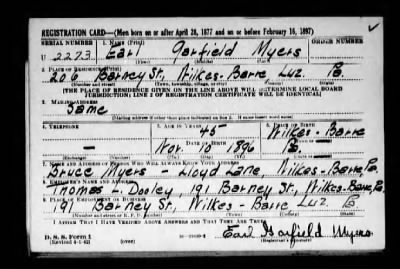 REGISTRATION CARD—(Men born on or after April 28, 1877 and on or before February 16, 1897)
SERIAL NUMBER 1. NAME (Print) ORDER NUMBER
U 2273 Earl Garfield Myers
(First) (Middle) (Last)
2. PLACE OF RESIDENCE (Print)
206 Barney St., Wilkes-Barre, Luz. Pa.
(Number and street) (Town, township, village, or city) (County) (State)
[THE PLACE OF RESIDENCE GIVEN ON THE LINE ABOVE WILL DETERMINE LOCAL BOARD
JURISDICTION; LINE 2 OF REGISTRATION CERTIFICATE WILL BE IDENTICAL]
3. MAILING ADDRESS
Same
[Mailing address if other than place indicated on line 2. If same insert word same]
4. TELEPHONE 5. AGE IN YEARS 6. PLACE OF BIRTH
45 Wilkes-Barre
DATE OF BIRTH (Town or county)
— Nov. 10 1896 Pa.
(Exchange) (Number) (Mo.) (Day) (Yr.) (State or country)
7. NAME AND ADDRESS OF PERSON WHO WILL ALWAYS KNOW YOUR ADDRESS
Bruce Myers - Lloyd Lane, Wilkes-Barre, Pa.
8. EMPLOYER'S NAME AND ADDRESS
Thomas - Dooley, 191 Barney St., Wilkes-Barre, Pa.
9. PLACE OF EMPLOYMENT OR BUSINESS
191 Barney St., Wilkes-Barre Luz. Pa.
(Number and street or R. F. D. number) (Town) (County) (State)
I AFFIRM THAT I HAVE VERIFIED ABOVE ANSWERS AND THAT THEY ARE TRUE.
D. S. S. Form 1
(Revised 4-1-42) (over) Earl Garfield Myers
(Registrant's signature)